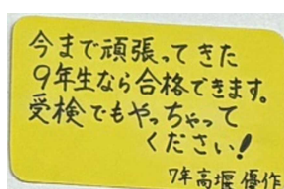 今まで頑張ってきた
9年生なら合格できます。
受検でもやっちゃって
ください!
7年高堰優作